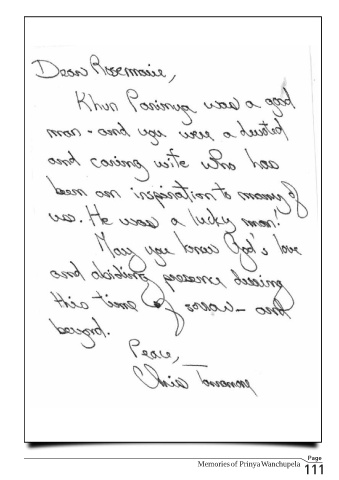 Dear Rosemarie,
Khun Parinya was a good
man - and you were a devoted
and caring wife who has
been an inspiration to many of
us. He was a lucky man!
May you know God's love
and abiding presence during
this time of sorrow - and
beyond.
Peace,
Chris
Memories of Prinya Wanchupela
Page
111